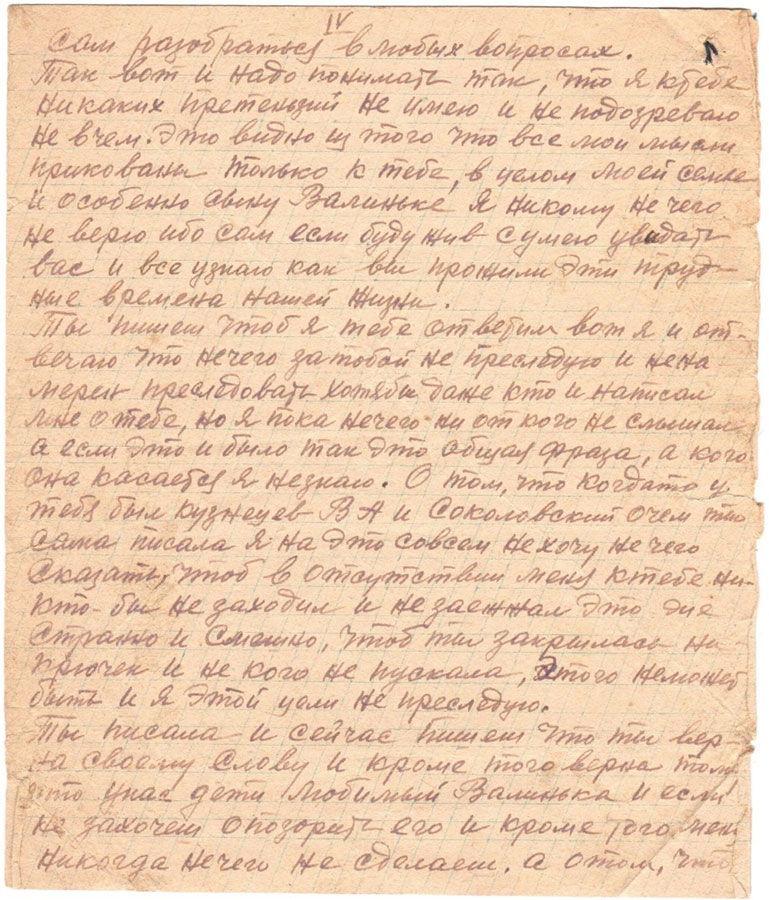 IV
сам разобраться в любых вопросах.
Так вот и надо понимать так, что я ктебе
никаких претензий не имею и не подозреваю
не вчем. Это видно из того что все мои мысли
прикованы только к тебе, в целом моей семье
и особенно сыну Валиньке я никому не чего
не верю ибо сам если буду жив сумею увидать
вас и все узнаю как вы прожили эти труд-
ные времена нашей жизни.
Ты пишеш чтоб я тебе ответил вот я и от-
вечаю что нечего затобой не преследую и нена
мерен преследовать хотябы даже кто и написал
мне о тебе, но я пока нечего ни от кого не слышал
а если это и было так это общая фраза, а кого
она касается я незнаю. О том, что когдато у
тебя был Кузнецев В А и Соколовский очем ты
сама писала я на это совсем не хочу не чего
сказать, чтоб в отсутствии меня ктебе ни-
кто-бы не заходил и не заежжал это же
странно и смешно, чтоб ты закрылась на
крючек и не кого не пускала, этого неможет
быть и я этой цели не преследую.
Ты писала и сейчас пишеш что ты вер-
на своему слову и кроме того верна тому
что унас дети любимый Валинька и если
не захочеш опозорить его и кроме того мен
никогда нечего не сделаеш. а отом, что